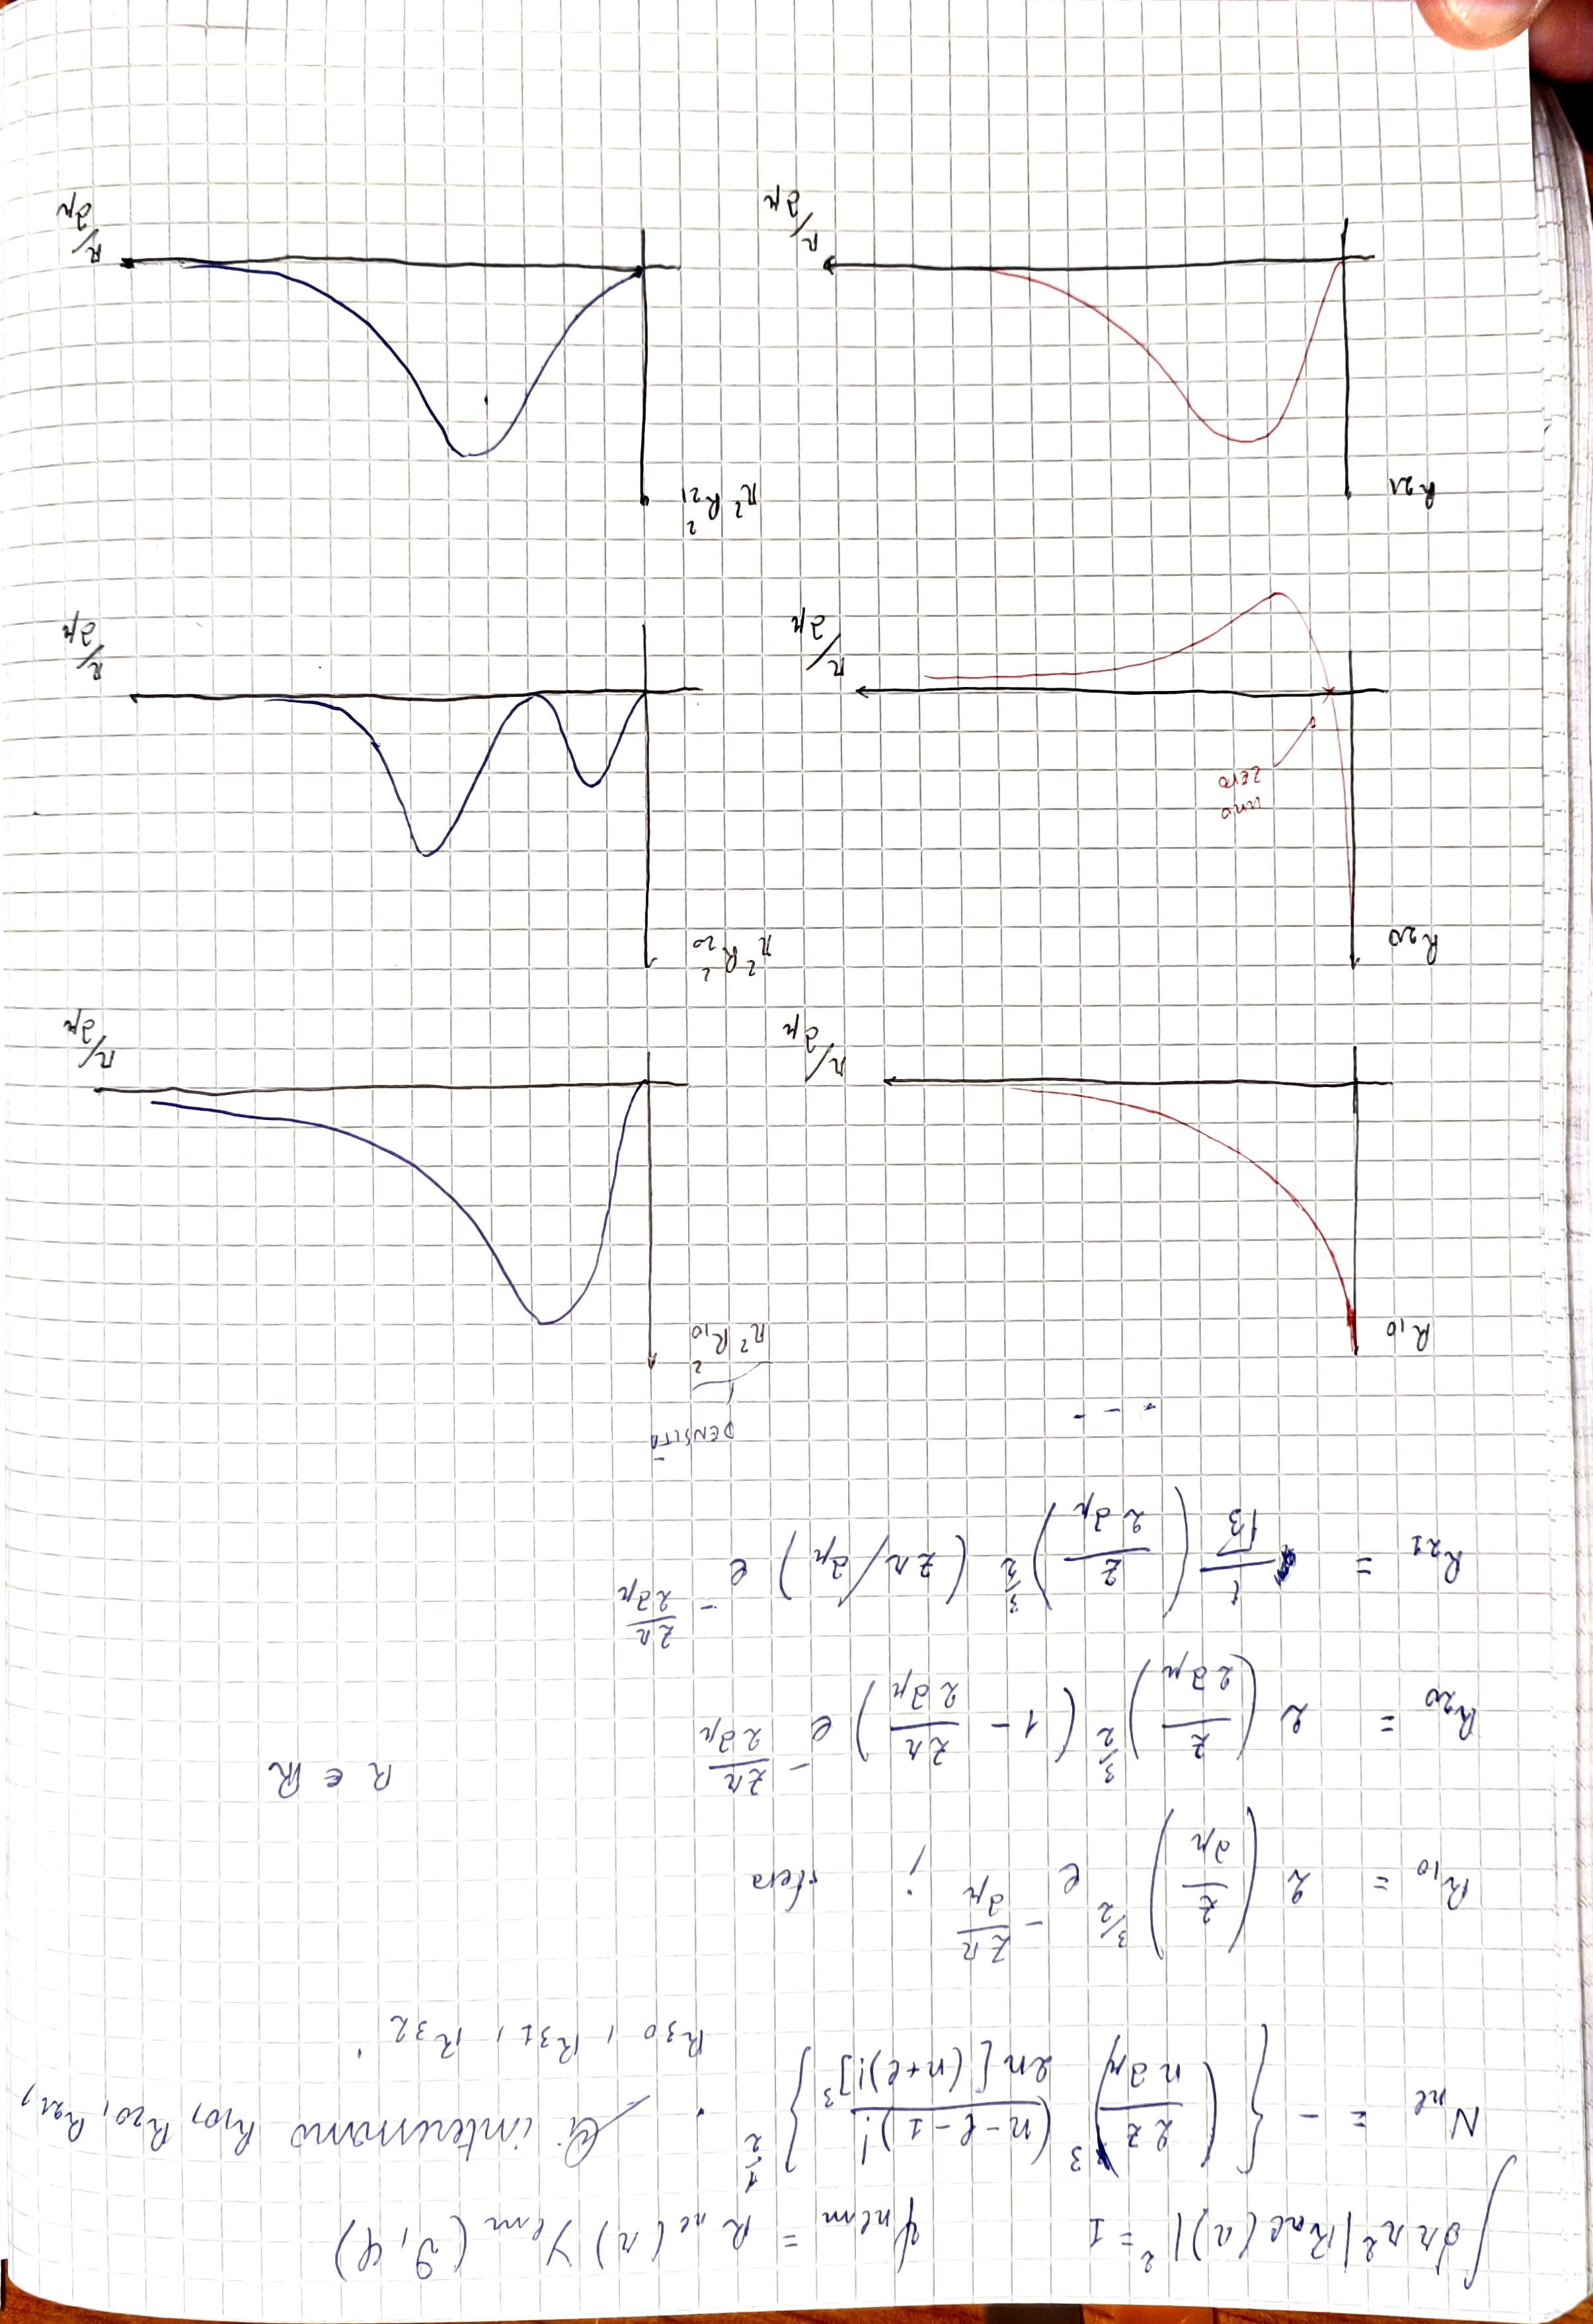 ∫dr r² |R_nl(r)|² = 1    ψ_nlm = R_nl(r) Y_lm(ϑ,φ)
N_nl = - { (2Z / n a_μ)^3 (n-l-1)! / 2n[(n+l)!]^3 }^{1/2} . Ci interessano R_10, R_20, R_21,
R_30, R_31, R_32.
R_10 = 2 (Z / a_μ)^{3/2} e^{-Zr / a_μ} ; sfera
R_20 = 2 (Z / 2a_μ)^{3/2} (1 - Zr / 2a_μ) e^{-Zr / 2a_μ}    R ∈ ℝ
R_21 = 1/√3 (Z / 2a_μ)^{3/2} (Zr/a_μ) e^{-Zr / 2a_μ}
- - -
DENSITÀ
R_10    r² R_10²
r/a_μ    r/a_μ
R_20    r² R_20²
uno
zero
r/a_μ    r/a_μ
R_21    r² R_21²
r/a_μ    r/a_μ